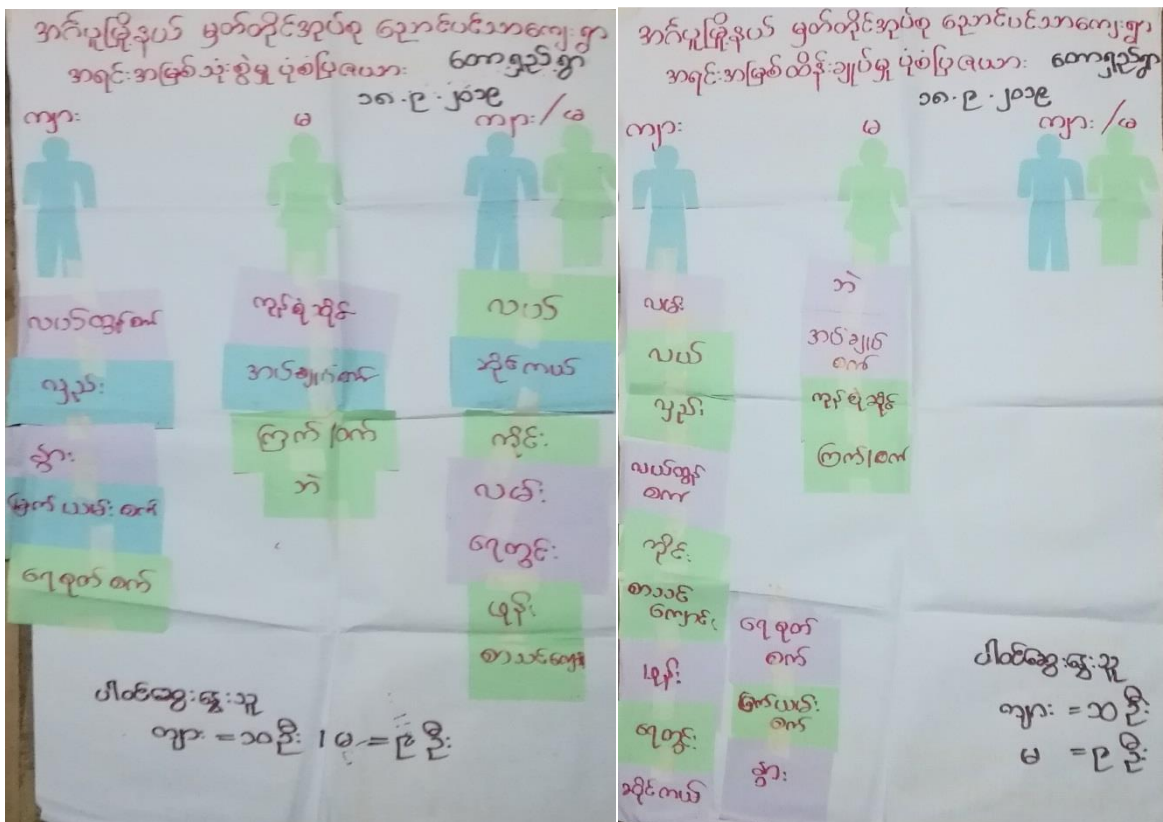 အင်္ဂပူမြို့နယ် မှတ်တိုင်အုပ်စု ညောင်ပင်သာကျေးရွာ
အရင်းအမြစ်သုံးစွဲမှု ပုံစံပြဇယား တောရှည်ရွာ
၁၈.၉.၂၀၁၉
ကျား မ ကျား/မ
လယ်ထွန်စက်
လှည်း
နွား
မြက်ယမ်းစက်
ရေစုတ်စက်
ကုန်စုံဆိုင်
အပ်ချုပ်စက်
ကြက်/ဝက်
ဘဲ
လယ်
ဆိုင်ကယ်
ကိုင်း
လမ်း
ရေတွင်း
ဖုန်း
စာသင်ကျောင်း
ပါဝင်ဆွေးနွေးသူ
ကျား = ၁၀ ဦး ၊ မ = ၉ ဦး
အင်္ဂပူမြို့နယ် မှတ်တိုင်အုပ်စု ညောင်ပင်သာကျေးရွာ
အရင်းအမြစ်ထိန်းချုပ်မှု ပုံစံပြဇယား တောရှည်ရွာ
၁၈.၉.၂၀၁၉
ကျား မ ကျား/မ
လမ်း
လယ်
လှည်း
လယ်ထွန်
စက်
ကိုင်း
စာသင်
ကျောင်း
ဖုန်း
ရေတွင်း
ဆိုင်ကယ်
ရေစုတ်
စက်
မြက်ယမ်း
စက်
နွား
ဘဲ
အပ်ချုပ်
စက်
ကုန်စုံဆိုင်
ကြက်/ဝက်
ပါဝင်ဆွေးနွေးသူ
ကျား = ၁၀ ဦး
မ = ၉ ဦး